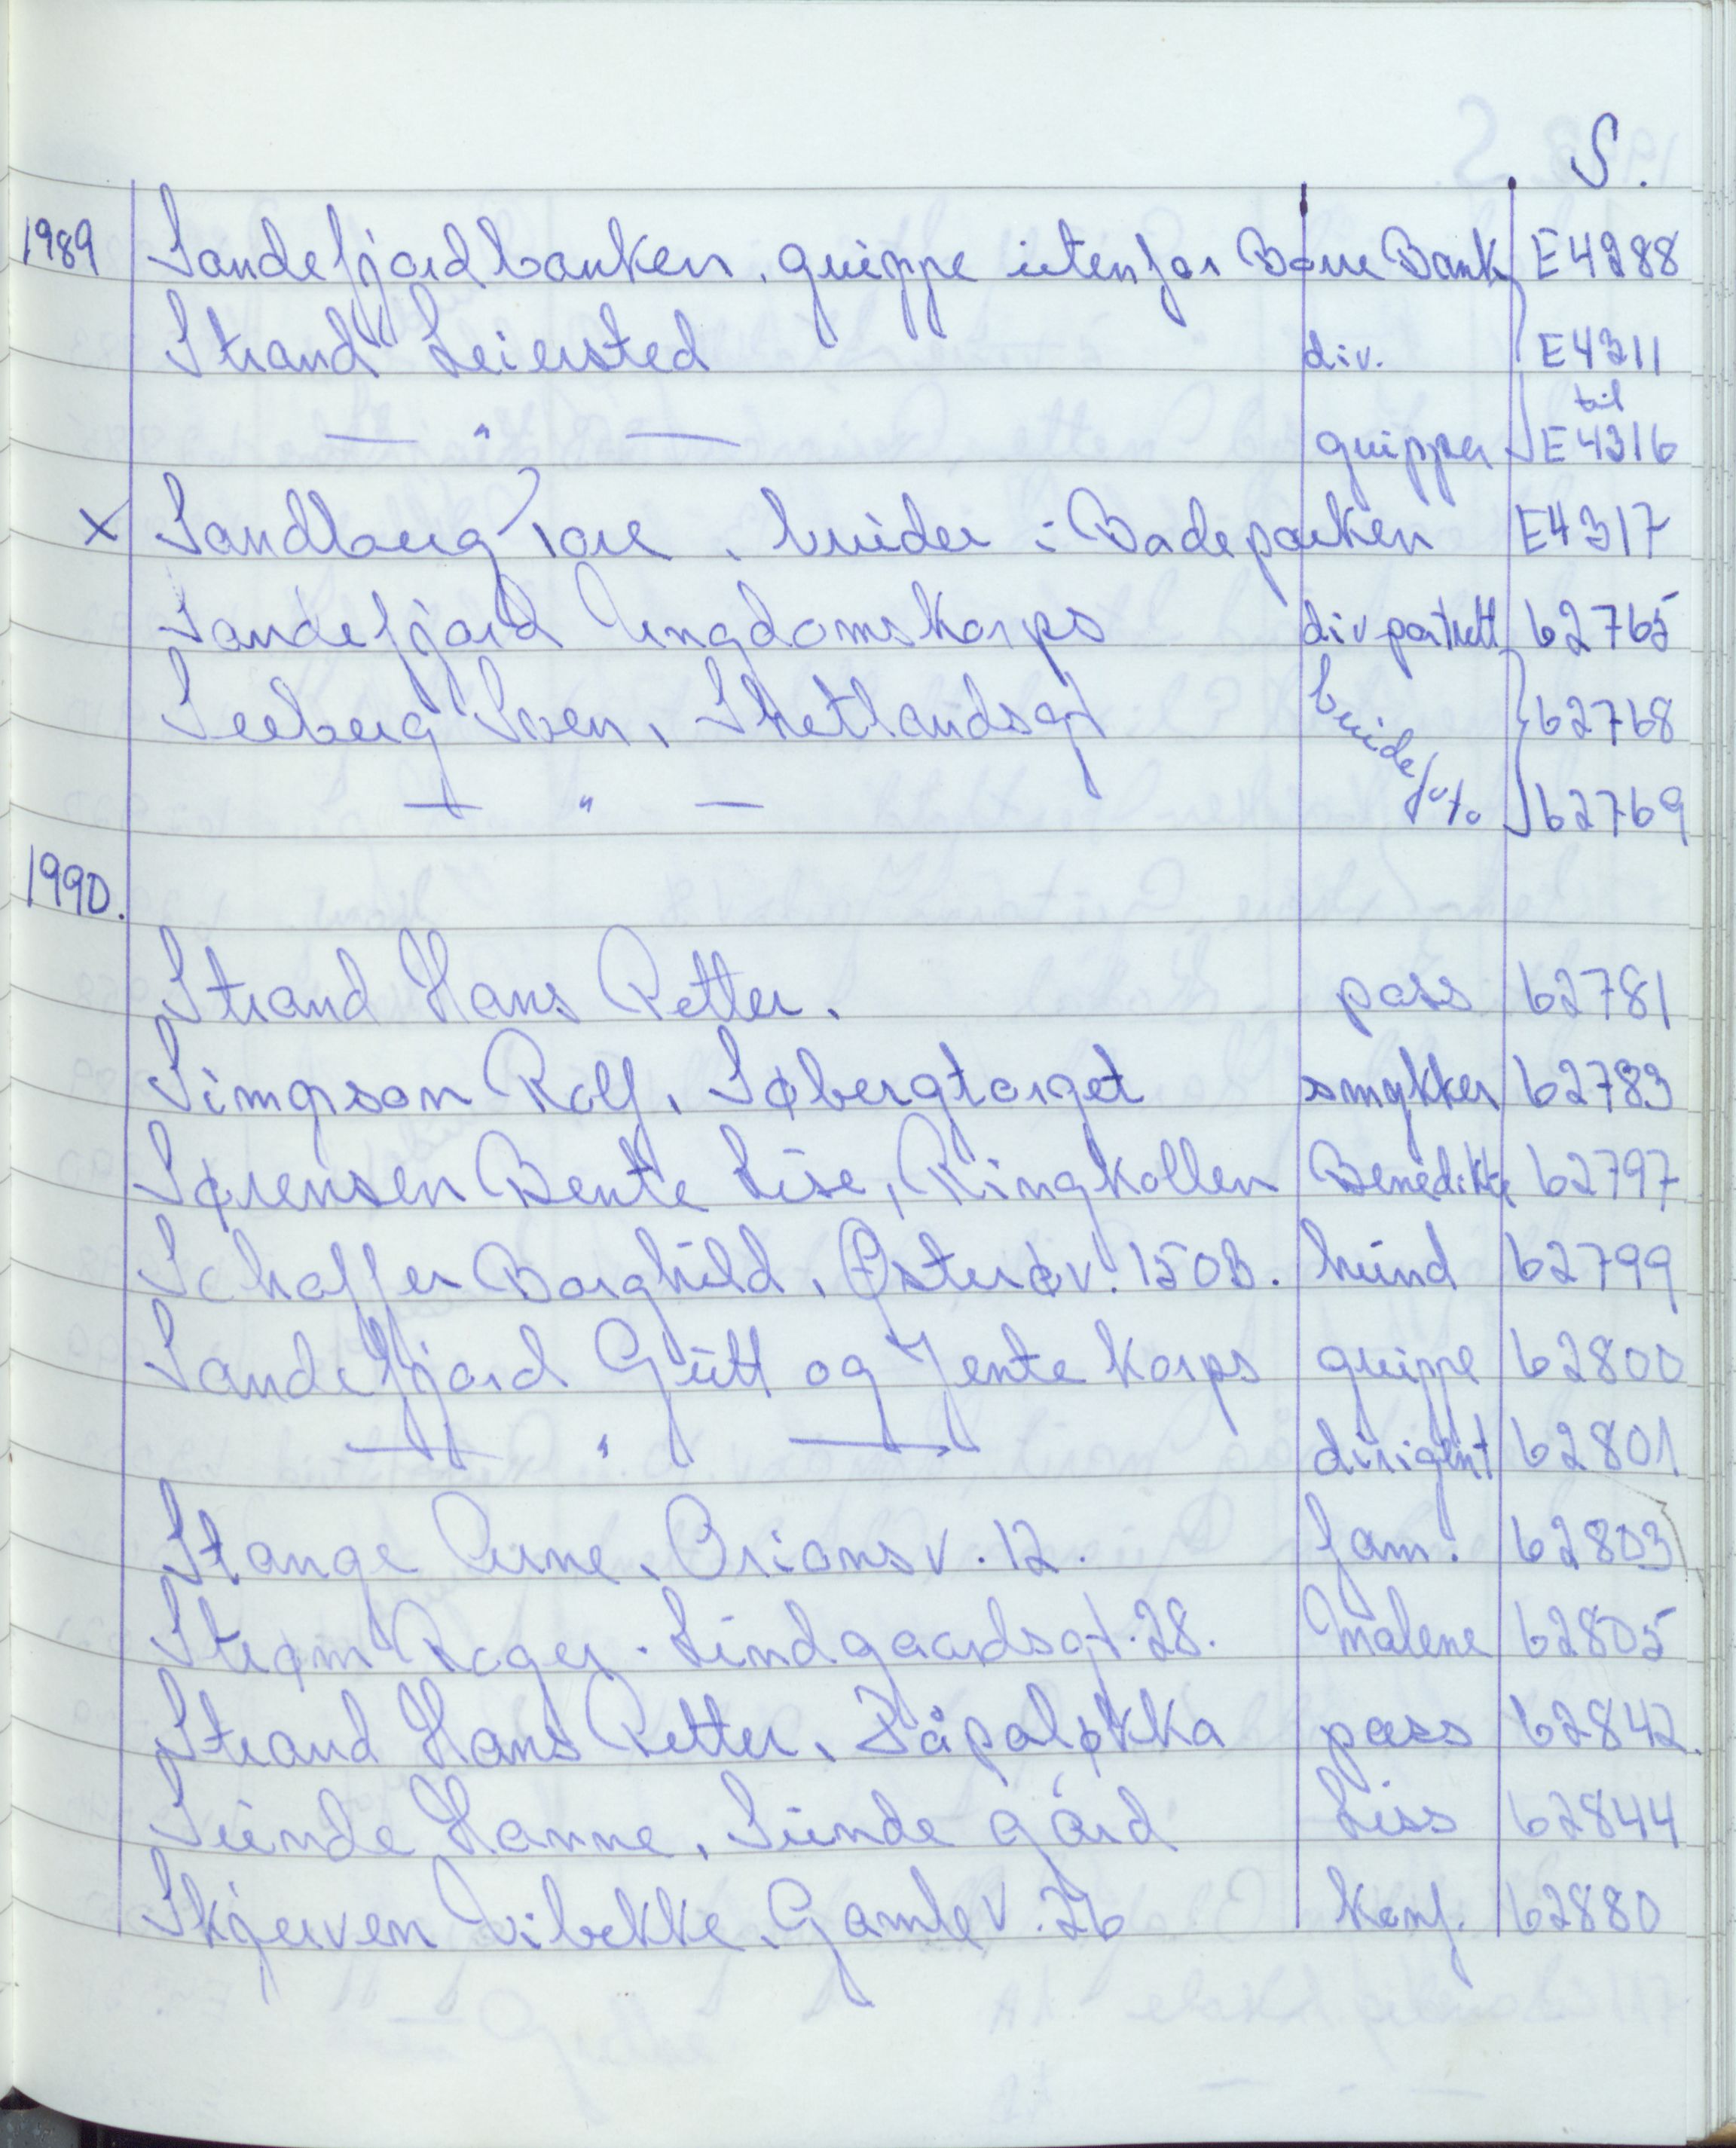 S.
1989 Sandefjordbanken, gruppe utenfor Bøve Bank E4288
Strand Leiersted div. E4311
til
— " — grupper E4316
x Sandberg Tore, bruder i Badeparken E4317
Sandefjord Ungdomskorps div portrett 62765
Seeberg Sven, Shetlandsgt brude 62768
— " — 62769
1990.
Strand Hans Petter. pass 62781
Simonson Rolf, Søbergtorget smykker 62783
Sørensen Bente Lise, Ringkollen Benedikte 62797
Schaffer Borghild, Østerøv. 150B. hund 62799
Sandefjord Gutt og Jente Korps gruppe 62800
— " — dirigent 62801
Stange Arne, Orions v. 12. fam. 62803
Strøm Roger. Lindgaardsgt. 28. Malene 62805
Strand Hans Petter, Påpaløkka pass 62842.
Sunde Hanne, Sunde gård Liss 62844
Skjerven Vibekke, Gamle v. 26 konf. 62880